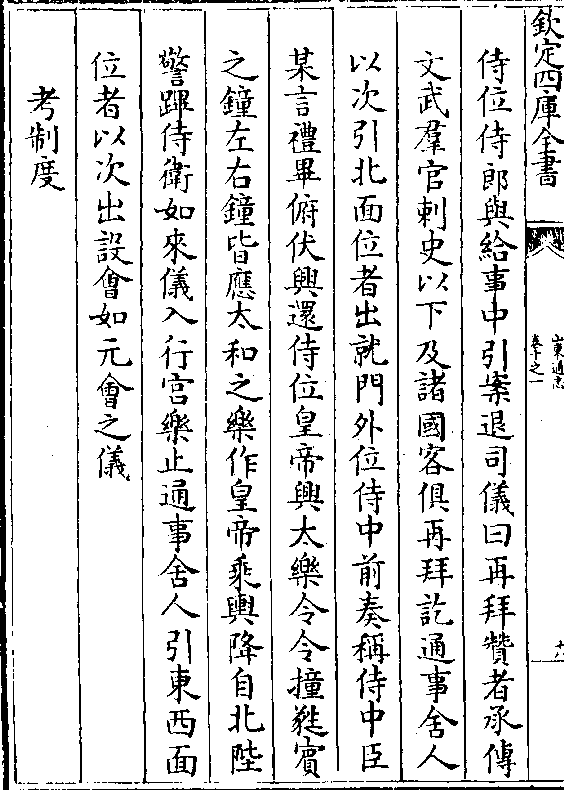 欽定四庫全書
山東通志
卷十之一
侍位侍郎與給事中引案退司儀曰再拜贊者承傳
文武羣官刺史以下及諸國客俱再拜訖通事舍人
以次引北面位者出就門外位侍中前奏稱侍中臣
某言禮畢俯伏興還侍位皇帝興太樂令令撞蕤賓
之鐘左右鐘皆應太和之樂作皇帝乘輿降自北陛
警蹕侍衛如來儀入行宮樂止通事舍人引東西面
位者以次出設會如元會之儀
考制度